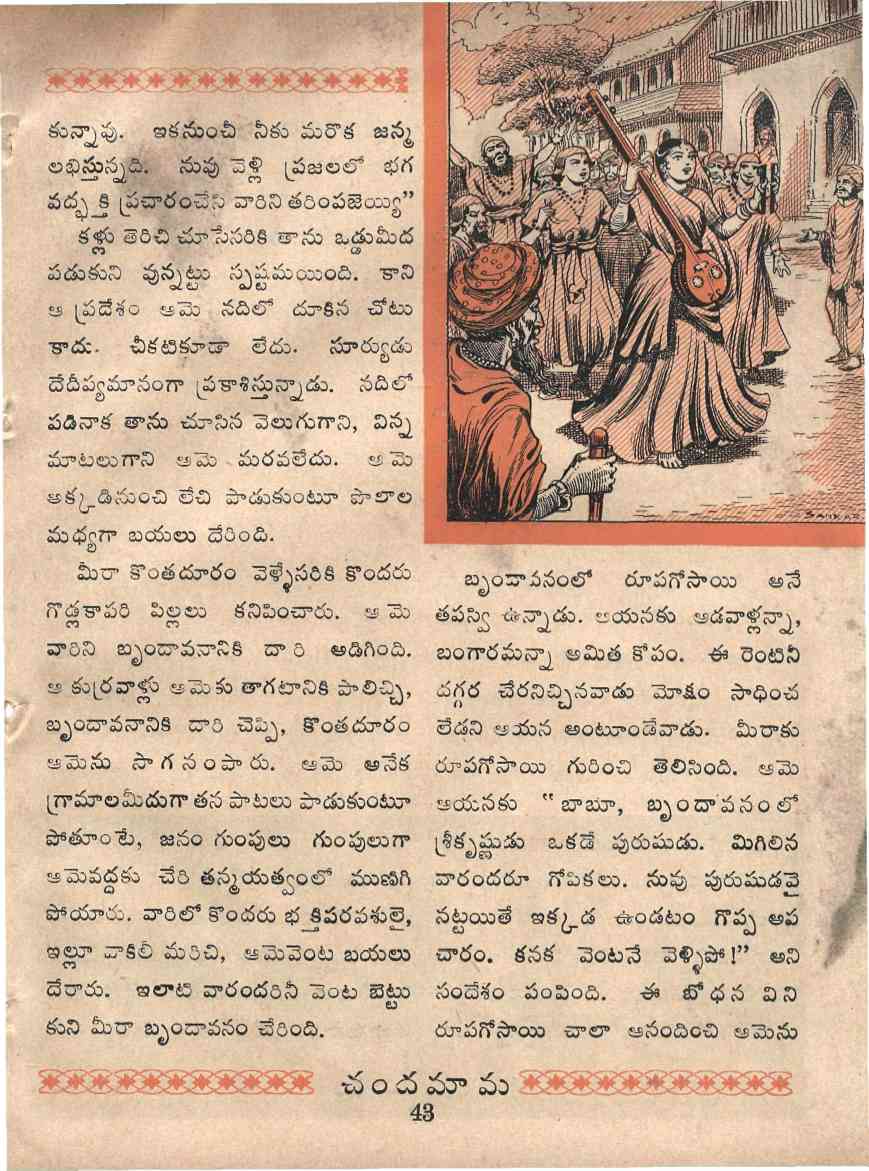 కున్నావు. ఇకనుంచీ నీకు మరొక జన్మ
లభిస్తున్నది. నువు వెళ్లి ప్రజలలో భగ
వద్భక్తి ప్రచారంచేసి వారిని తరింపజెయ్యి”
కళ్లు తెరిచి చూసేసరికి తాను ఒడ్డుమీద
పడుకుని వున్నట్టు స్పష్టమయింది. కాని
ఆ ప్రదేశం ఆమె నదిలో దూకిన చోటు
కాదు. చీకటికూడా లేదు. సూర్యుడు
దేదీప్యమానంగా ప్రకాశిస్తున్నాడు. నదిలో
పడినాక తాను చూసిన వెలుగుగాని, విన్న
మాటలుగాని ఆమె మరవలేదు. ఆమె
అక్కడినుంచి లేచి పాడుకుంటూ పొలాల
మధ్యగా బయలు దేరింది.
మీరా కొంతదూరం వెళ్ళేసరికి కొందరు
గొడ్లకాపరి పిల్లలు కనిపించారు. ఆమె
వారిని బృందావనానికి దారి అడిగింది.
ఆ కుర్రవాళ్లు ఆమెకు తాగటానికి పాలిచ్చి,
బృందావనానికి దారి చెప్పి, కొంతదూరం
ఆమెను సాగనంపారు. ఆమె అనేక
గ్రామాలమీదుగా తన పాటలు పాడుకుంటూ
పోతూంటే, జనం గుంపులు గుంపులుగా
ఆమెవద్దకు చేరి తన్మయత్వంలో ముణిగి
పోయారు. వారిలో కొందరు భక్తిపరవశులై,
ఇల్లూ వాకిలీ మరిచి, ఆమెవెంట బయలు
దేరారు. ఇలాటి వారందరినీ వెంట బెట్టు
కుని మీరా బృందావనం చేరింది.
SANKAR
బృందావనంలో రూపగోసాయి అనే
తపస్వి ఉన్నాడు. ఆయనకు ఆడవాళ్లన్నా,
బంగారమన్నా అమిత కోపం. ఈ రెంటినీ
దగ్గర చేరనిచ్చినవాడు మోక్షం సాధించ
లేడని ఆయన అంటూండేవాడు. మీరాకు
రూపగోసాయి గురించి తెలిసింది. ఆమె
ఆయనకు “బాబూ, బృందావనంలో
శ్రీకృష్ణుడు ఒకడే పురుషుడు. మిగిలిన
వారందరూ గోపికలు. నువు పురుషుడవై
నట్టయితే ఇక్కడ ఉండటం గొప్ప అప
చారం. కనక వెంటనే వెళ్ళిపో!” అని
సందేశం పంపింది. ఈ బోధన విని
రూపగోసాయి చాలా ఆనందించి ఆమెను
చందమామ
43